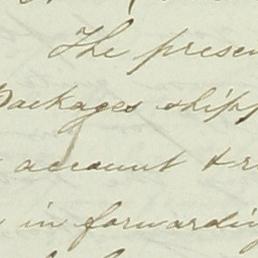 The presen
Packages shipp
account & r
in forwardin